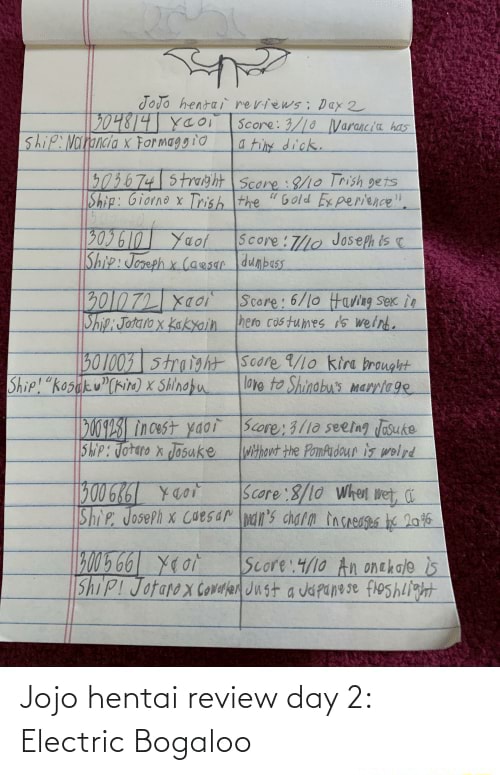 JoJo hentai reviews: Day 2
304814 yaoi Score: 3/10 Narancia has
Ship: Narancia x Formaggio a tiny dick.
303674 straight Score: 8/10 Trish gets
Ship: Giorno x Trish the "Gold Experience".
303610 Yaoi Score: 7/10 Joseph is a
Ship: Joseph x Caesar dumbass
301072 yaoi Score: 6/10 Having sex in
Ship: Jotaro x Kakyoin hero costumes is weird.
301003 straight Score 9/10 kira brought
Ship! "Kosaku"(Kira) x Shinobu love to Shinobu's marriage
300928 incest yaoi Score: 3/10 seeing Josuke
Ship: Jotaro x Josuke without the Pompadour is weird
300686 yaoi Score: 8/10 When wet, a
Ship: Joseph x Caesar man's charm increases by 20%
300566 yaoi Score: 4/10 An onahole is
Ship! Jotaro x Just a Japanese fleshlight
Jojo hentai review day 2:
Electric Bogaloo